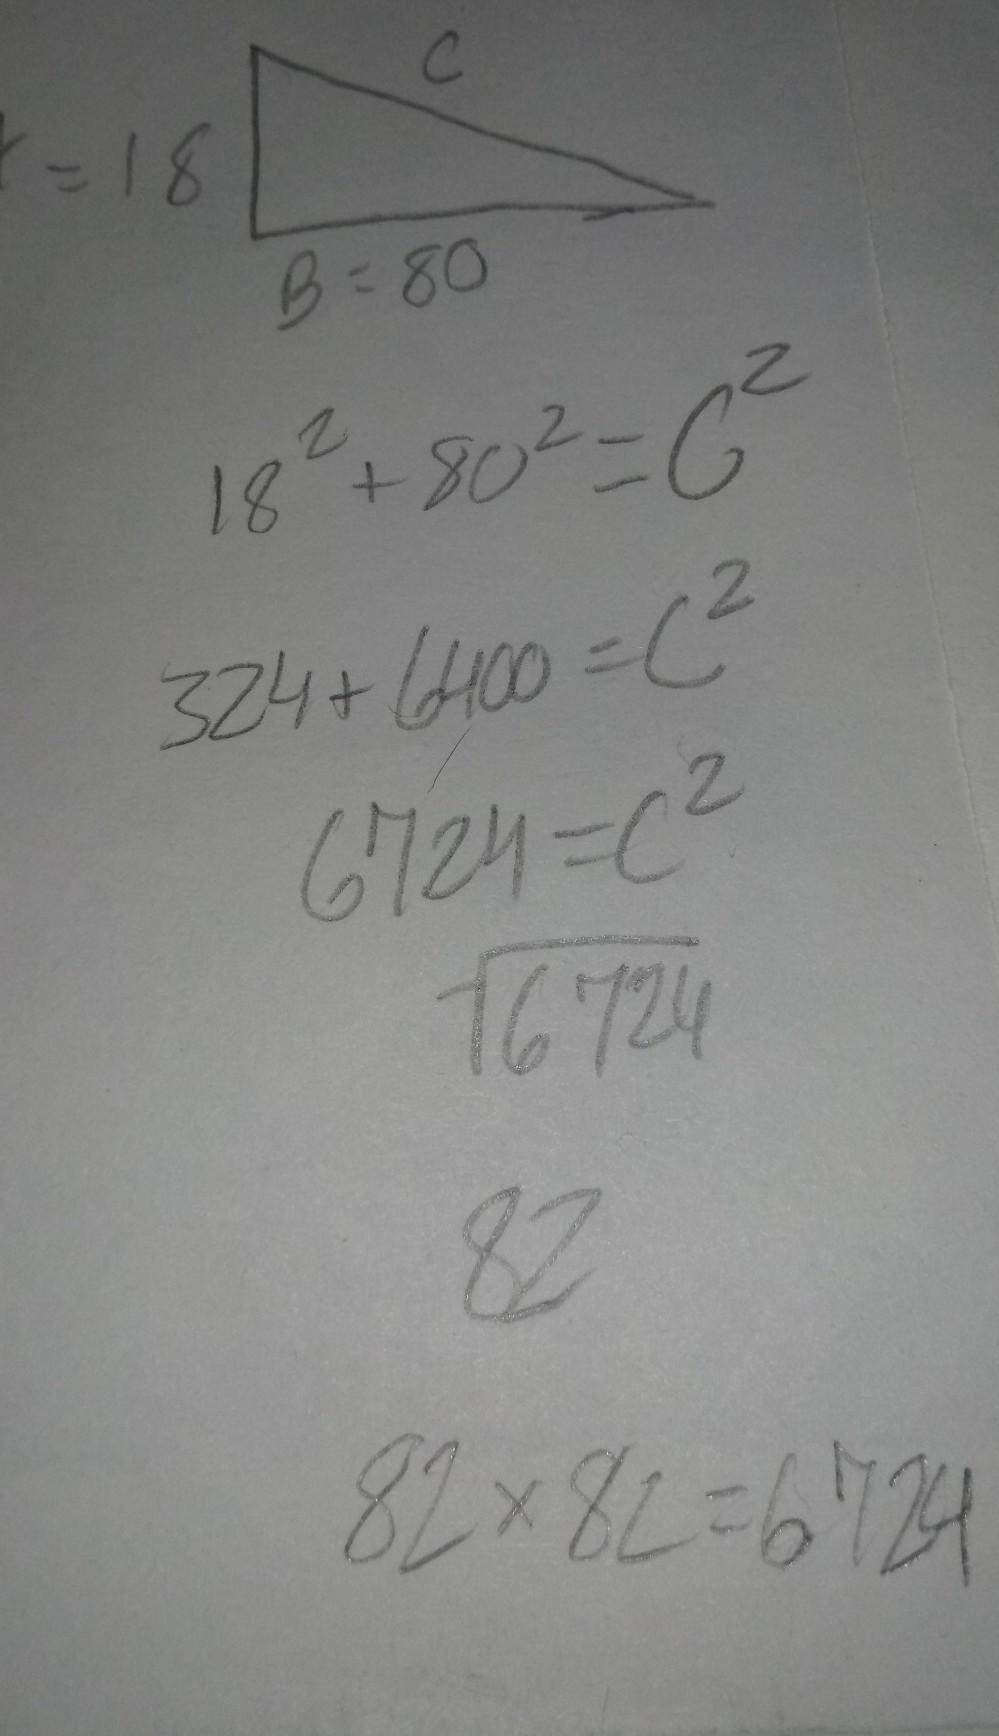 C
= 18
B = 80
18² + 80² = C²
324 + 6400 = C²
6724 = C²
√6724
82
82 × 82 = 6724